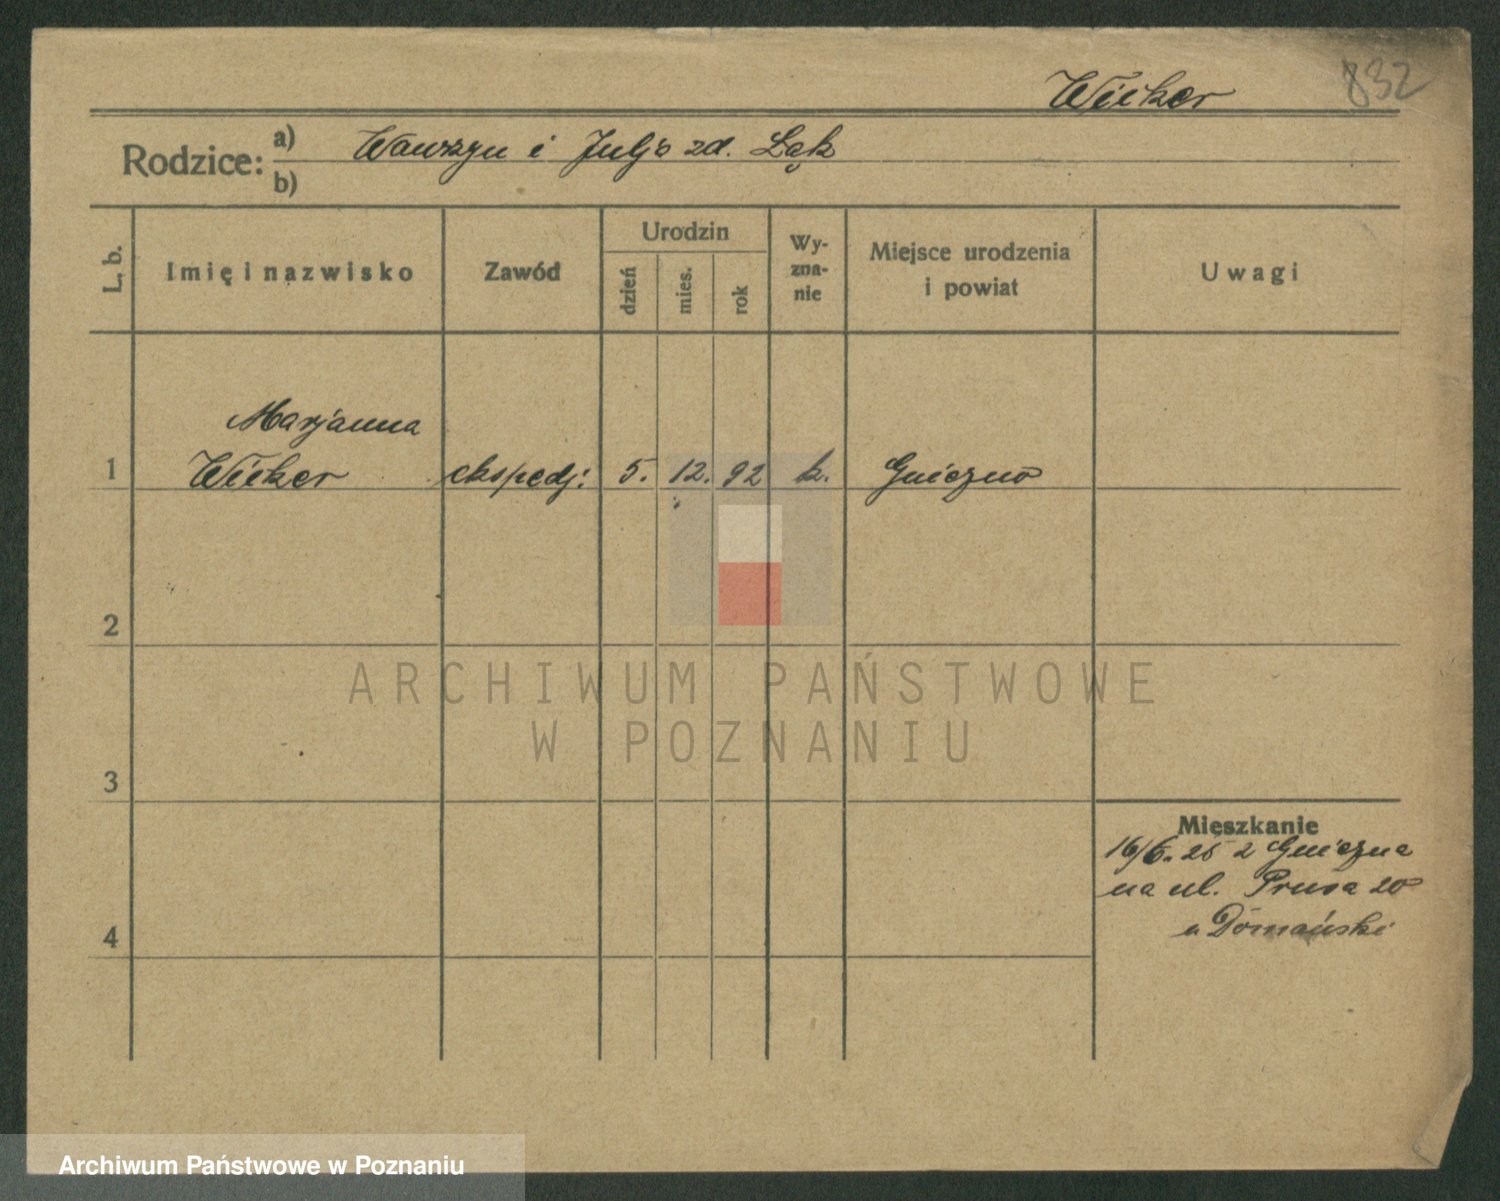 Wieker
832
Rodzice: a) Wawrzyn i Julja zd. Łąk
b)
L. b. Imię i nazwisko Zawód Urodzin dzień mies. rok Wy-zna-nie Miejsce urodzenia i powiat Uwagi
Marjanna
1 Wieker ekspedj: 5. 12. 92 k. Gniezno
2
ARCHIWUM PAŃSTWOWE
W POZNANIU
3
Mieszkanie
16/6. 25 z Gniezna
na ul. Prusa 20
4
u Domański
Archiwum Państwowe w Poznaniu